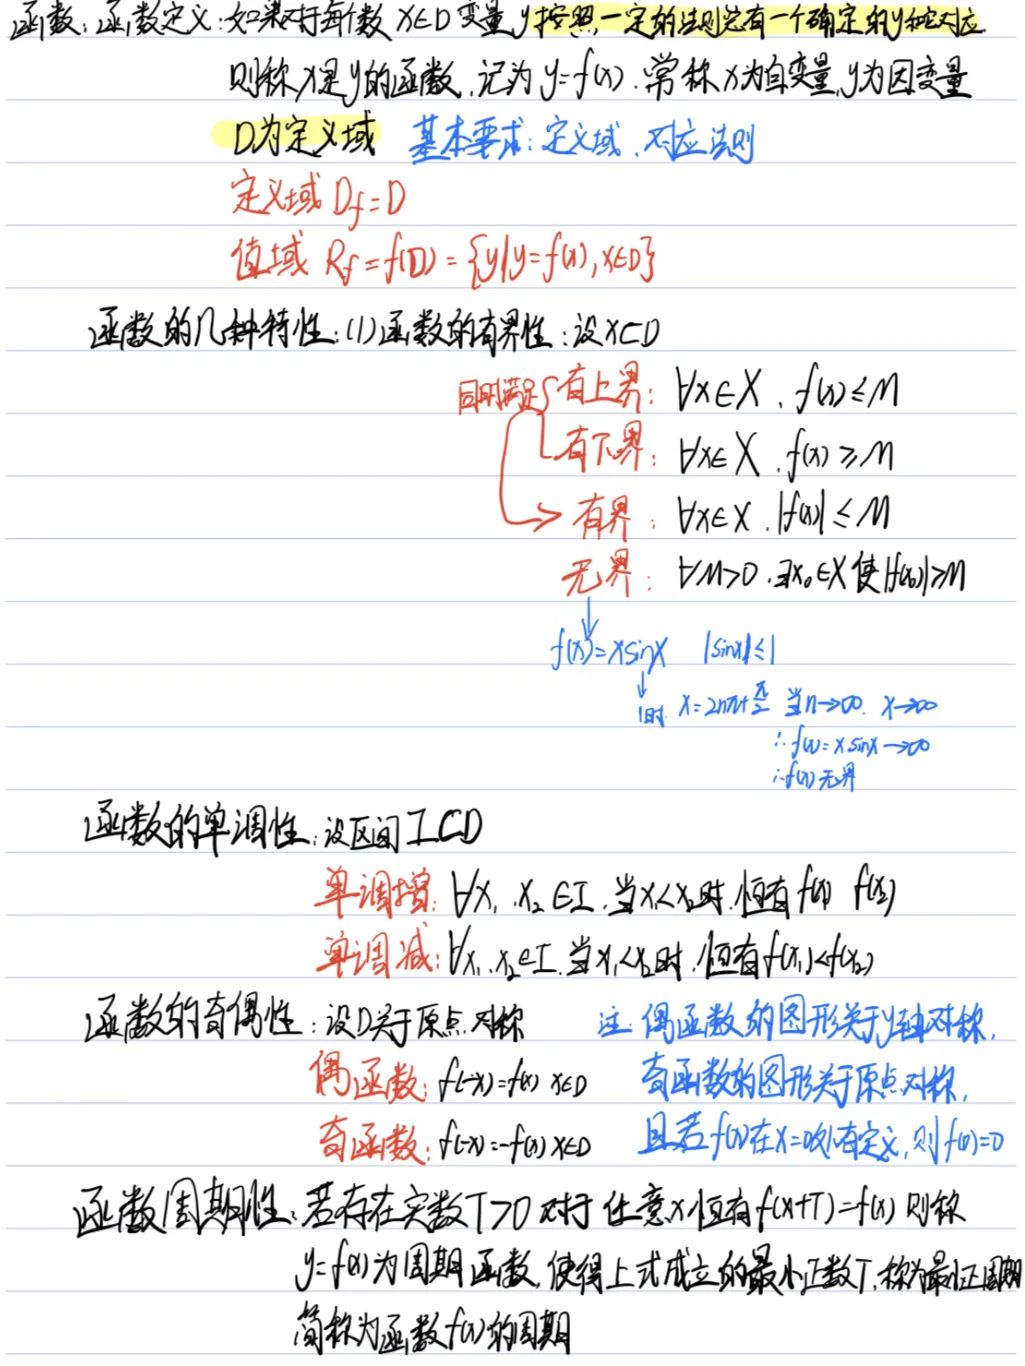 函数:函数定义:如果对于每个数x∈D变量y按照一定的法则总有一个确定的y和它对应
则称x是y的函数,记为y=f(x).常称x为自变量,y为因变量
D为定义域 基本要求:定义域、对应法则
定义域 Df=D
值域 Rf=f(D)={y|y=f(x),x∈D}
函数的几种特性:(1)函数的有界性:设X⊂D
同时满足{有上界:∀x∈X,f(x)≤M
有下界:∀x∈X,f(x)≥M
有界:∀x∈X,|f(x)|≤M
无界:∀M>0,∃x₀∈X使|f(x₀)|>M
f(x)=xsinx |sinx|≤1
1时 x=2nπ+π/2 当n→∞ x→∞
∴f(x)=xsinx→∞
∴f(x)无界
函数的单调性:设区间I⊂D
单调增:∀x₁,x₂∈I,当x₁<x₂时,恒有f(x) f(x₂)
单调减:∀x₁,x₂∈I,当x₁<x₂时,恒有f(x₁)<f(x₂)
函数的奇偶性:设D关于原点对称 注:偶函数的图形关于y轴对称,
偶函数:f(-x)=f(x) x∈D 奇函数的图形关于原点对称,
奇函数:f(-x)=-f(x) x∈D 且若f(x)在x=0处有定义,则f(0)=0
函数周期性:若存在实数T>0 对于任意x恒有f(x+T)=f(x)则称
y=f(x)为周期函数,使得上式成立的最小正数T,称为最小正周期
简称为函数f(x)的周期